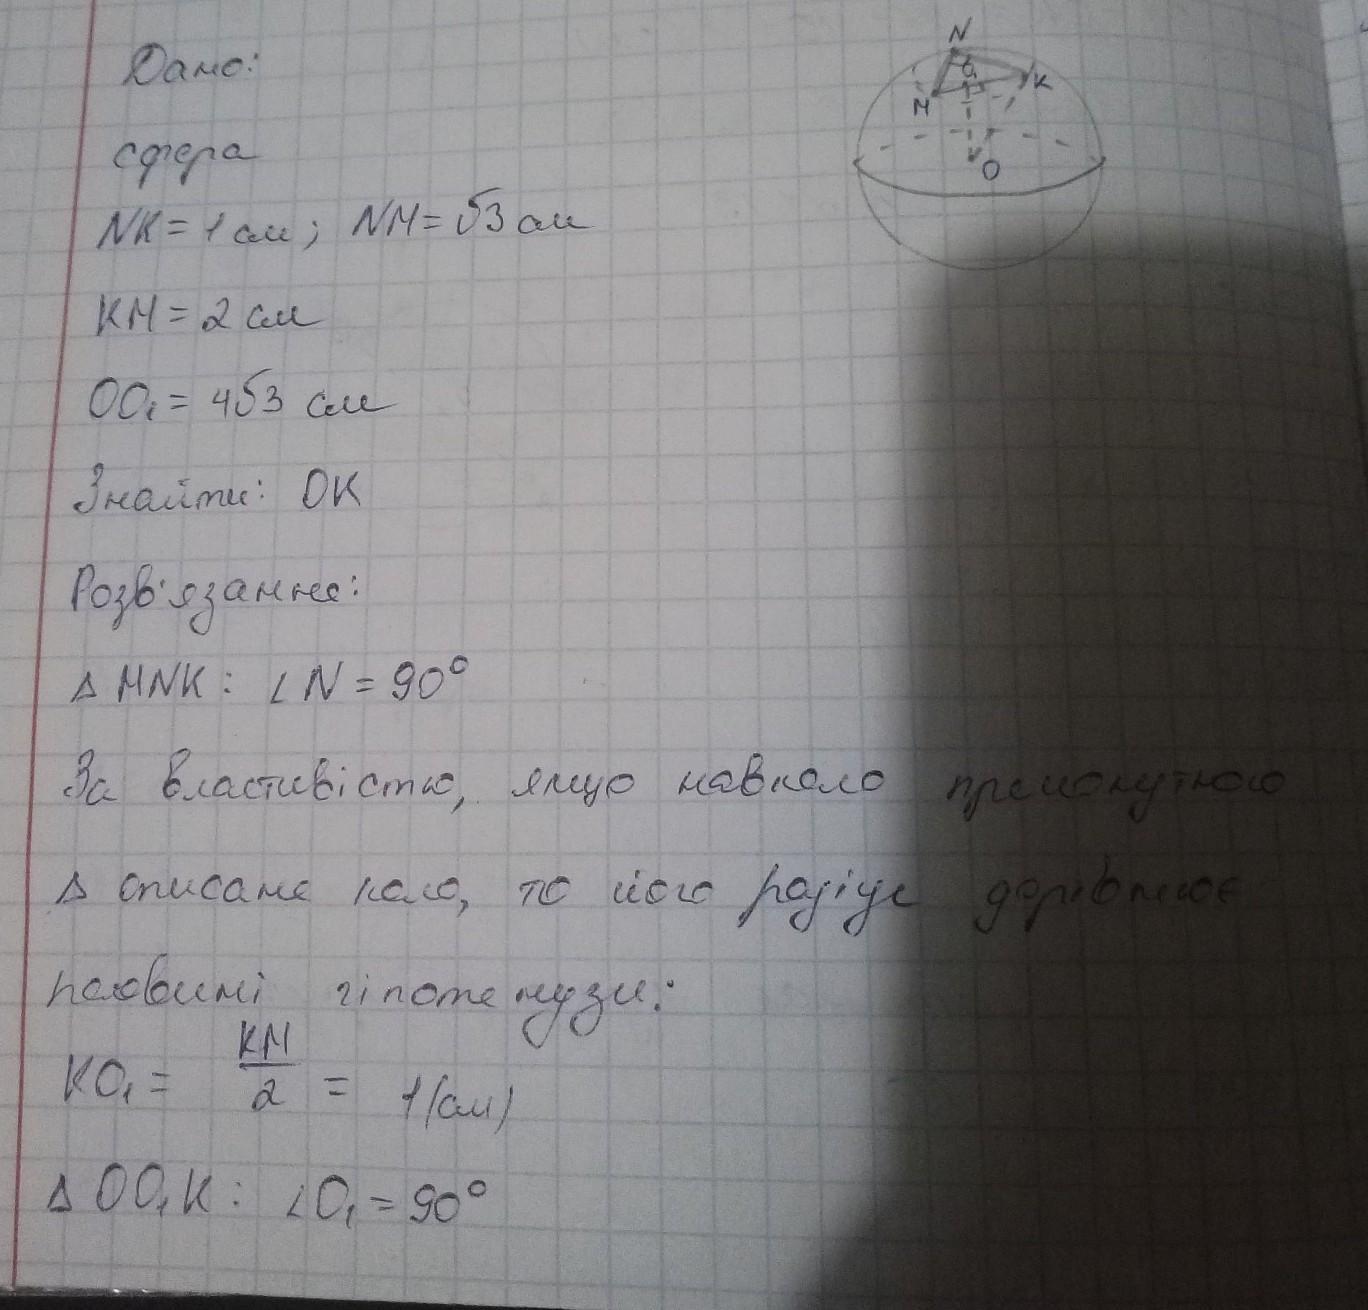 N
O₁
M
K
O
Дано:
сфера
NK = 1 см; NM = √3 см
KM = 2 см
OO₁ = 4√3 см
Знайти: OK
Розв'язання:
Δ MNK: ∠N = 90°
За властивістю, якщо навколо прямокутного
Δ описане коло, то його радіус дорівнює
половині гіпотенузи:
KO₁ = KM/2 = 1(см)
Δ OO₁K: ∠O₁ = 90°